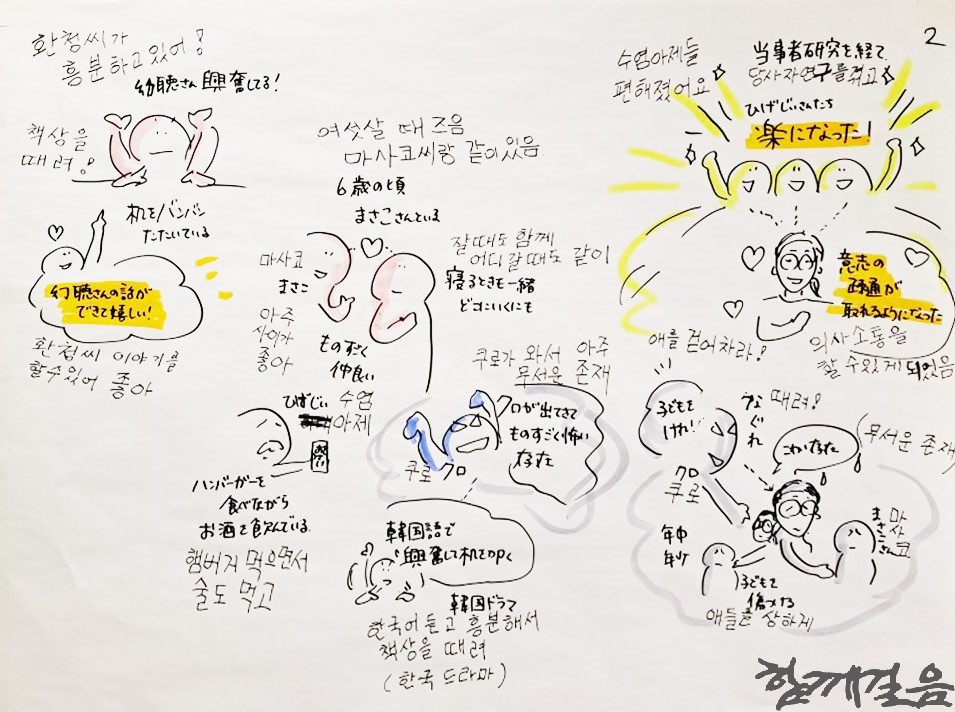 2
환청씨가
흥분하고있어!
幻聴さん興奮してる!
책상을
때려!
机をバンバン
たたいている
幻聴さんの話が
できて嬉しい!
환청씨 이야기를
할수있어 좋아
여섯살 때 즈음
마사코씨랑 같이있음
6歳の頃
まさこさんといる
마사코
まさこ
아주
사이가
좋아
ものすごく
仲良い
잘때도 함께
어디 갈 때도 같이
寝るときも一緒
どこにいくにも
쿠로가 와서 아주
무서운 존재
クロが出てきて
ものすごく怖い
存在
쿠로 クロ
ひげじい 수염
아제
ハンバーガーを
食べながら
お酒を飲んでいる
햄버거 먹으면서
술도 먹고
韓国語で
興奮して机を叩く
韓国ドラマ
한국어 듣고 흥분해서
책상을 때려
(한국 드라마)
수염아제들
편해졌어요
当事者研究を経て
당사자연구를 겪고
ひげじいさんたち
楽になった!
意志の
疎通が
取れるようになった
의사소통을
할 수있게 되었음
애를 걷어차라!
子どもを
けれ!
なぐれ
때려!
こわい存在
(무서운 존재)
クロ
쿠로
まさこさん
마사코
年中
年少
子どもを
傷つける
애들을 상하게
함께걸음